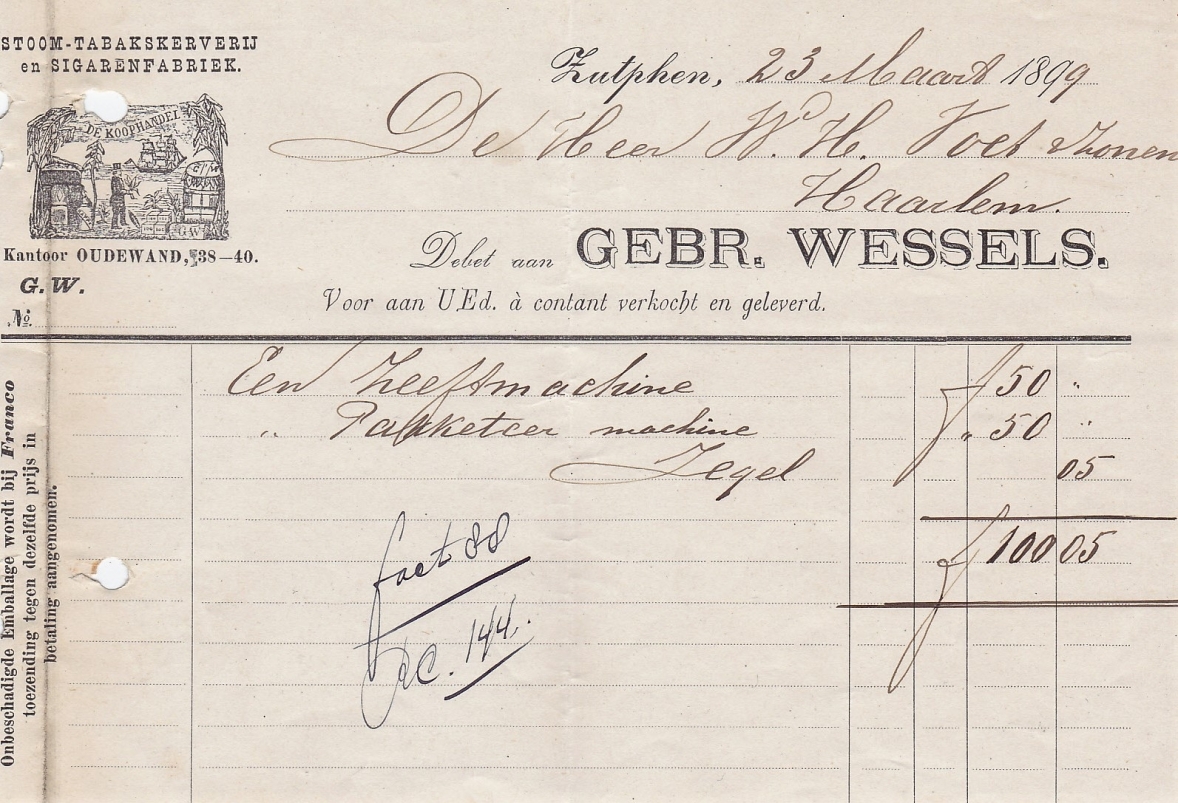 STOOM-TABAKSKERVERIJ
en SIGARENFABRIEK.
DE KOOPHANDEL
G W
Kantoor OUDEWAND, 38–40.
G. W.
№
Zutphen, 23 Maart 1899
De Heer W. H. Voet & Zonen
Haarlem.
Debet aan GEBR. WESSELS.
Voor aan UEd. à contant verkocht en geleverd.
Een Zeeftmachine f 50 "
" Pakketeer machine " 50 "
Zegel 05
f 100 05
fact 88
144.
Onbeschadigde Emballage wordt bij Franco
toezending tegen dezelfde prijs in
betaling aangenomen.